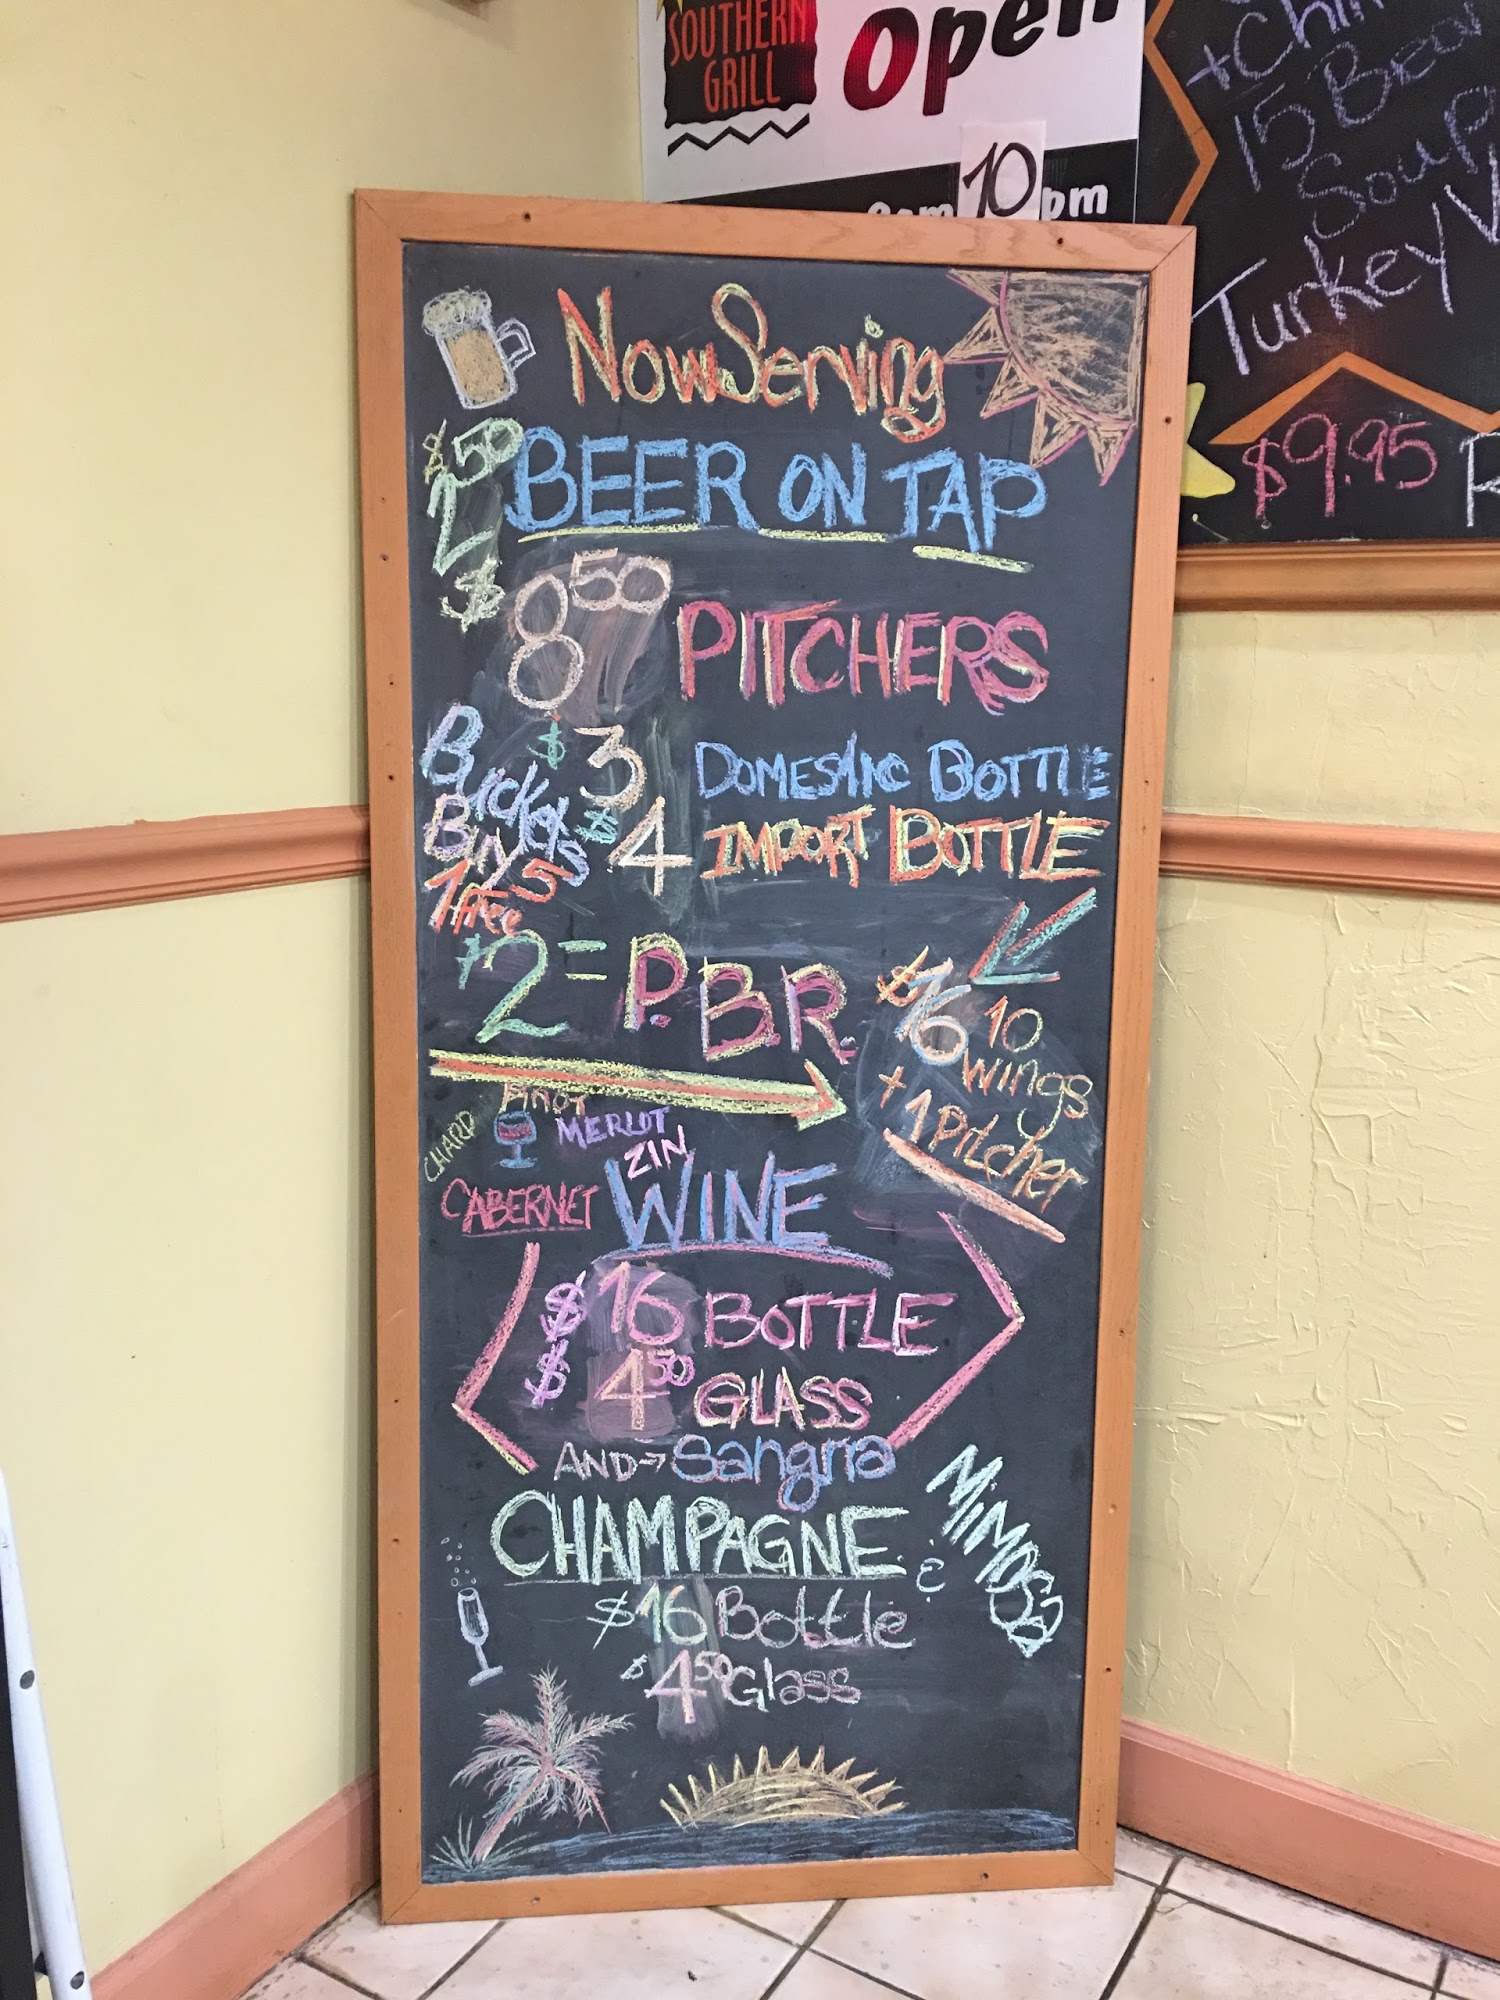 SOUTHERN
GRILL
Open
10 pm
+ Chin
15 Bean
Soup
Turkey
$9.95
Now Serving
$2.50 BEER ON TAP
$8.50 PITCHERS
Buckets
Buy 5
1 free
$3 DOMESTIC BOTTLE
$4 IMPORT BOTTLE
$2 = P.B.R.
$16 10
wings
+ 1 Pitcher
CHARD
PINOT
MERLOT
ZIN
CABERNET
WINE
$16 BOTTLE
$4.50 GLASS
AND → Sangria
CHAMPAGNE & MIMOSA
$16 Bottle
$4.50 Glass